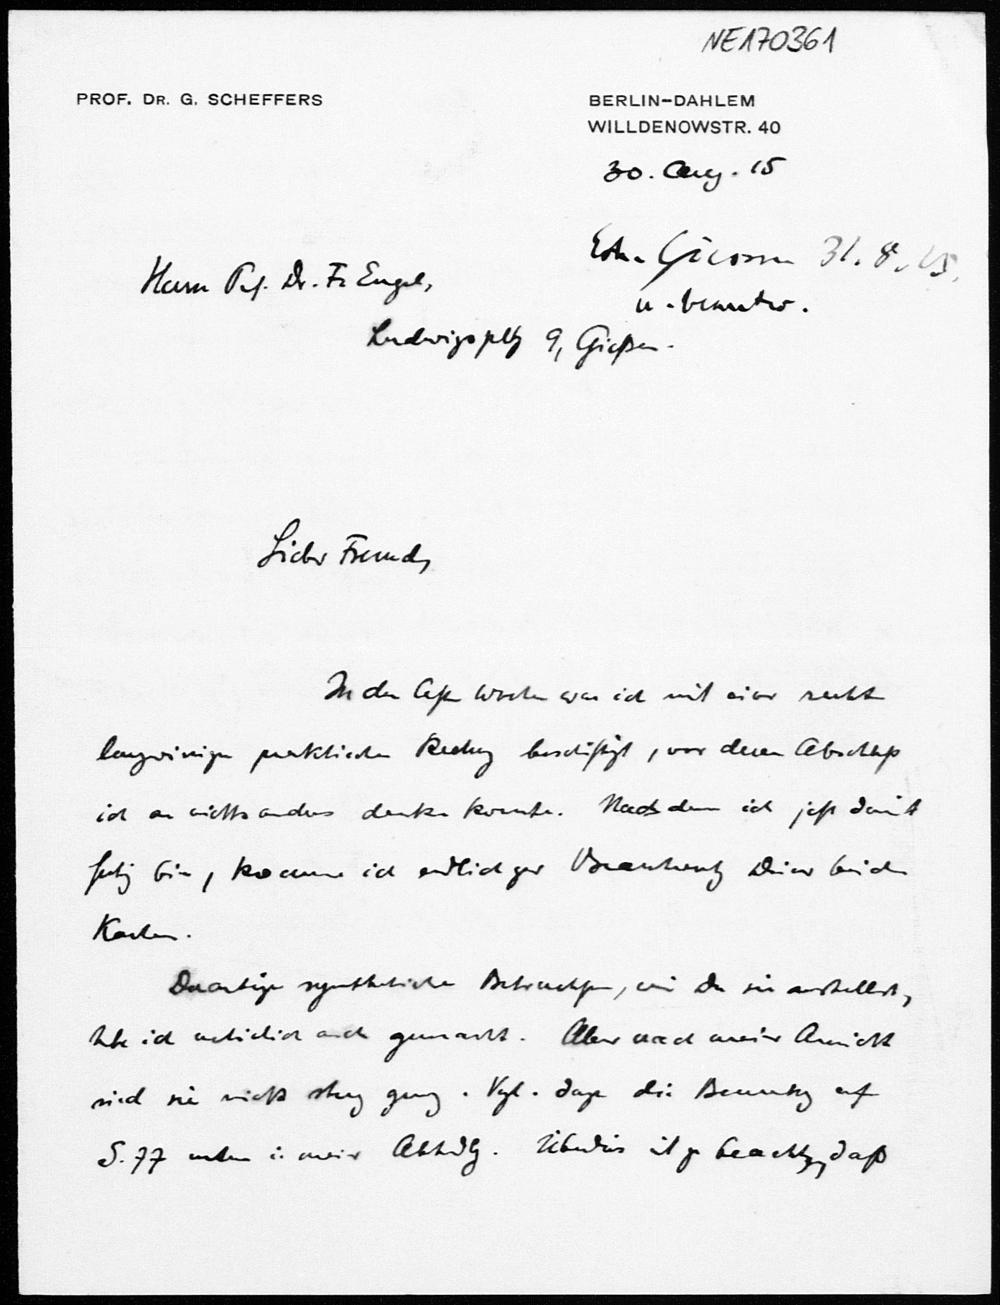 NE170361
PROF. DR. G. SCHEFFERS
BERLIN-DAHLEM
WILLDENOWSTR. 40
30. Aug. 15
Giessen 31. 8. 15.
u. beantw.
Herrn Prf. Dr. Fr Engel,
Ludwigsplatz 9, Gießen.
Lieber Freund,
In der letzten Woche war ich mit einer recht
langwierigen praktischen Rechnung beschäftigt, vor deren Abschluß
ich an nichts anders denken konnte. Nachdem ich jetzt damit
fertig bin, komme ich endlich zur Beantwortung Deiner beiden
Karten.
Derartige synthetische Betrachtungen, wie Du sie anstellst,
habe ich natürlich auch gemacht. Aber nach meiner Ansicht
sind sie nicht streng genug. Vgl. dazu die Bemerkung auf
S. 77 unten in meiner Abhdlg. Überdies ist zu beachten, daß